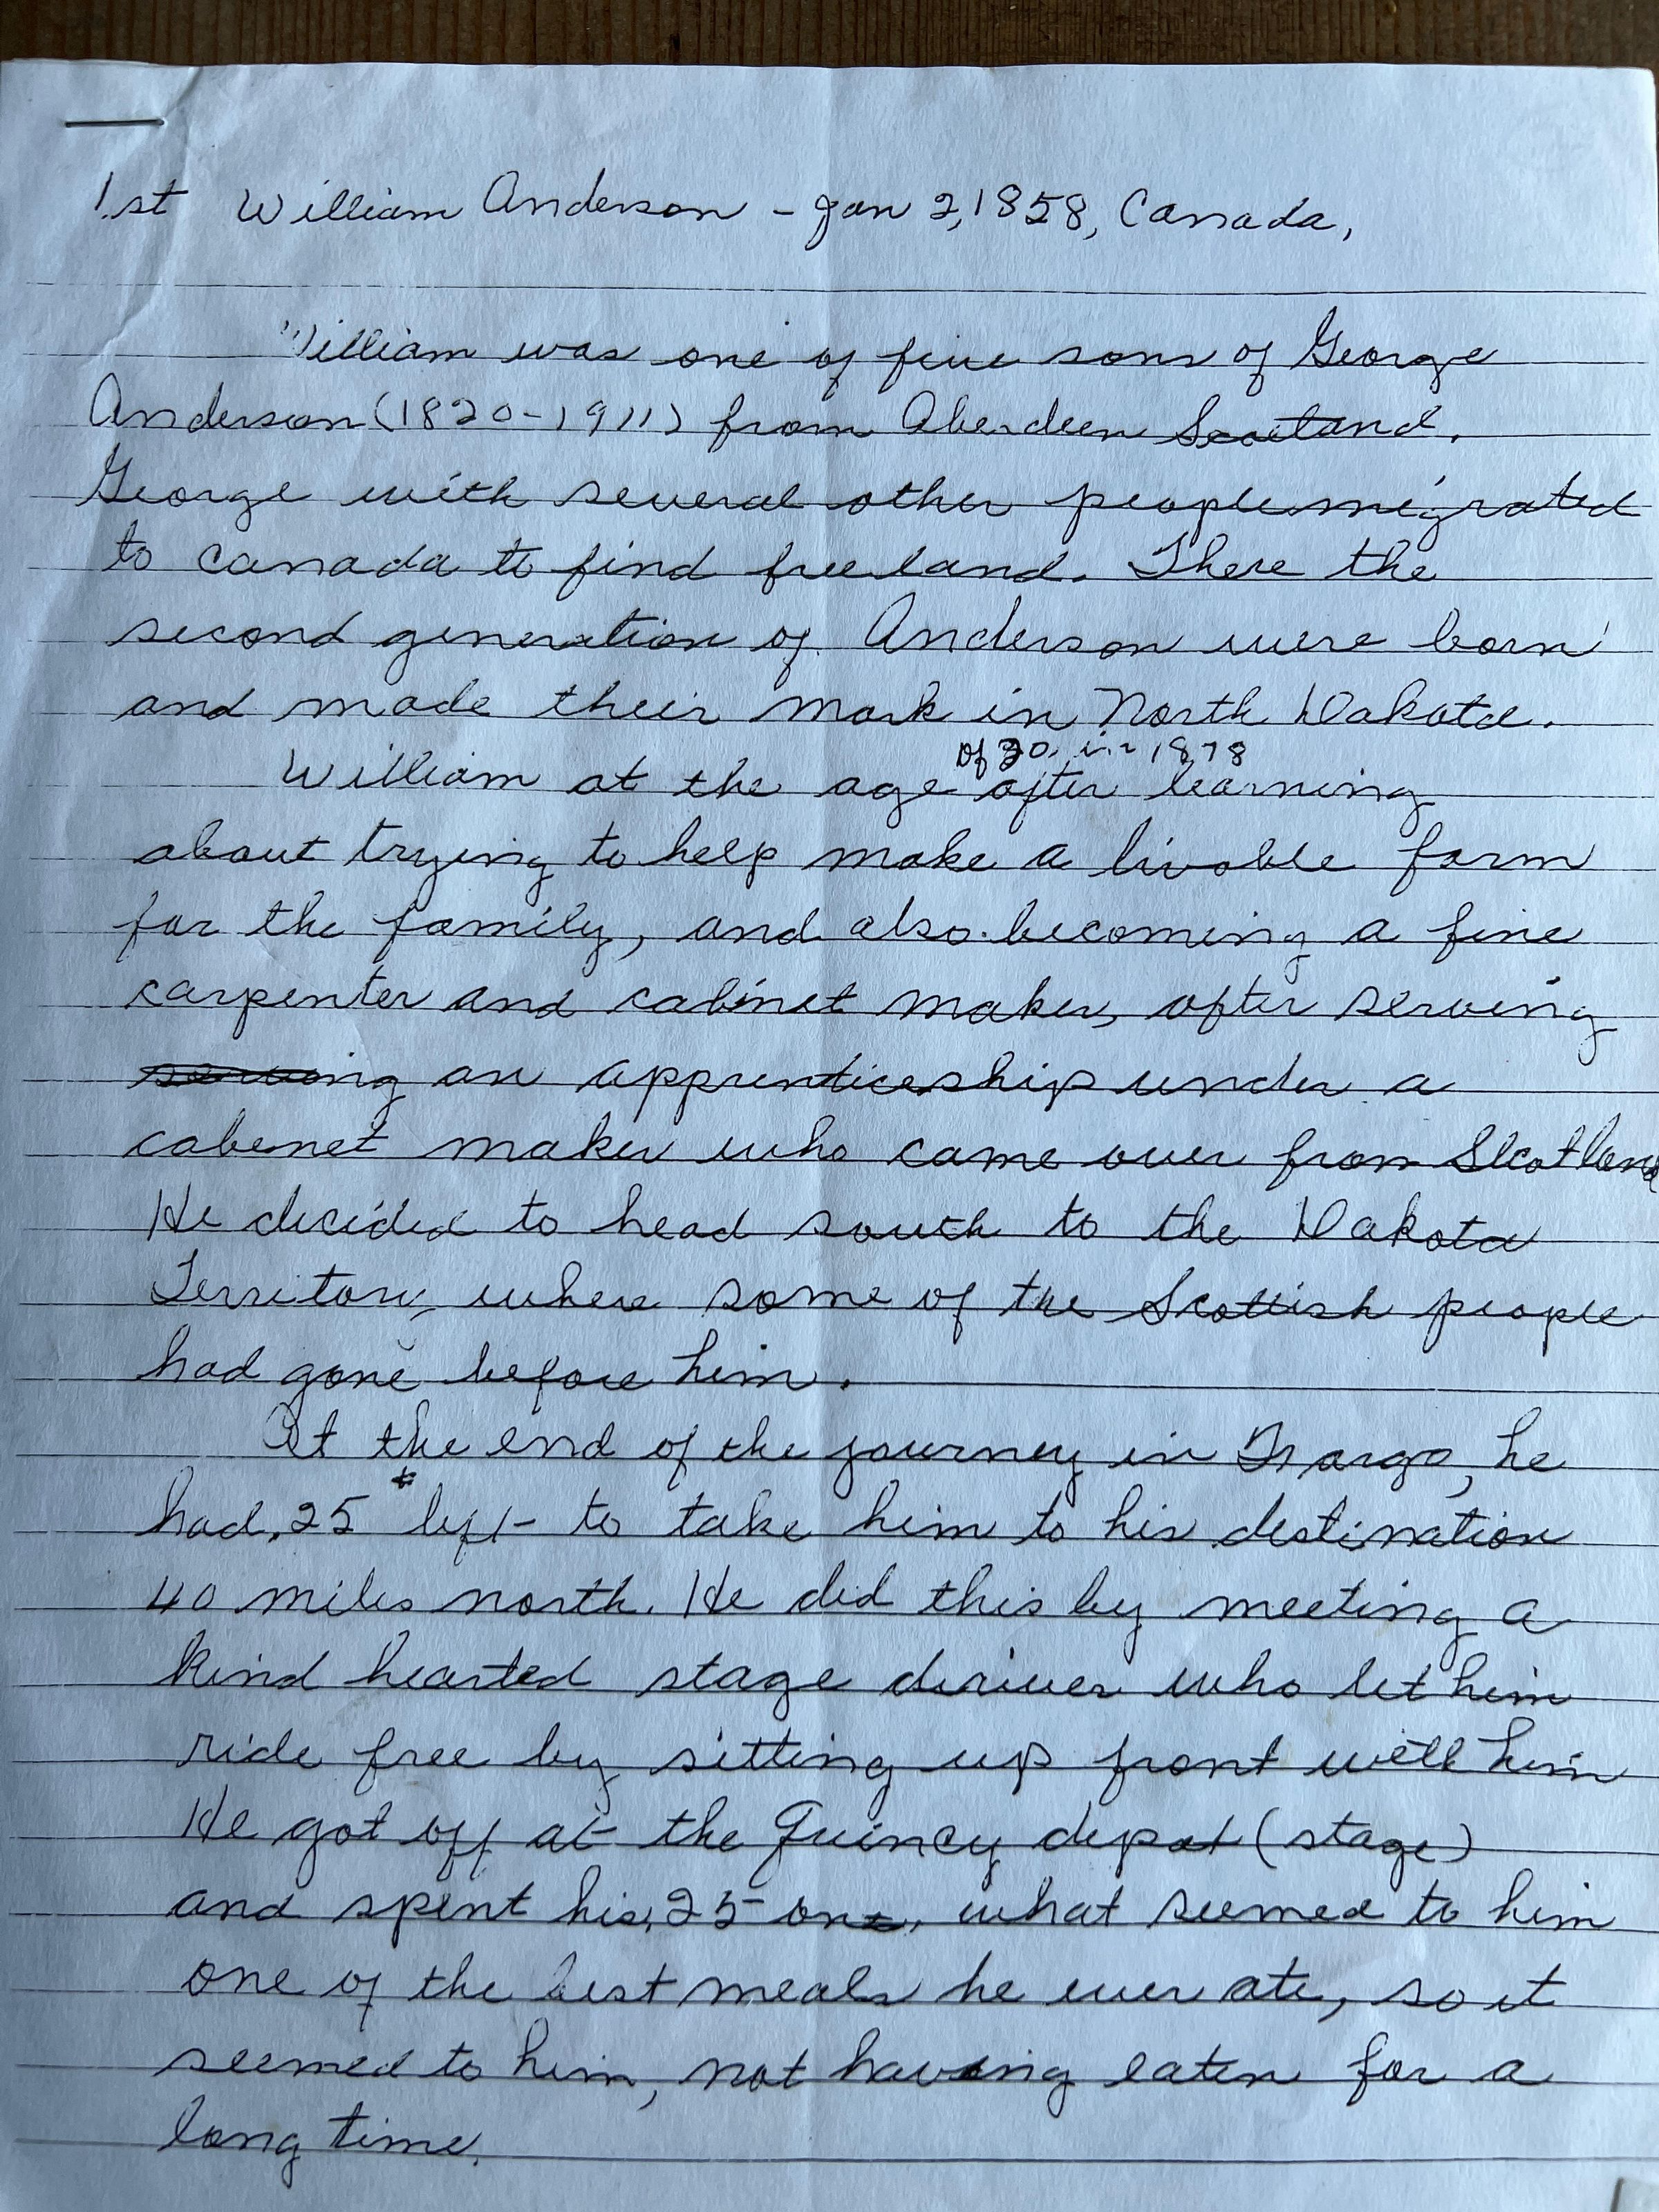 1st William Anderson - Jan 2, 1858, Canada,
William was one of five sons of George
Anderson (1820-1911) from Aberdeen Scotland.
George with several other people migrated
to Canada to find free land. There the
second generation of Anderson were born
and made their mark in North Dakota.
of 20, in 1878
William at the age after learning
about trying to help make a livable farm
for the family, and also becoming a fine
carpenter and cabinet maker, after serving
serving an apprenticeship under a
cabenet maker who came over from Scotland
He decided to head south to the Dakota
Territory, where some of the Scottish people
had gone before him.
At the end of the journey in Fargo, he
had .25 ¢ left to take him to his destination
40 miles north. He did this by meeting a
kind hearted stage driver who let him
ride free by sitting up front with him
He got off at the Quincy depot (stage)
and spent his .25 on, what seemed to him
one of the best meals he ever ate, so it
seemed to him, not having eaten for a
long time.